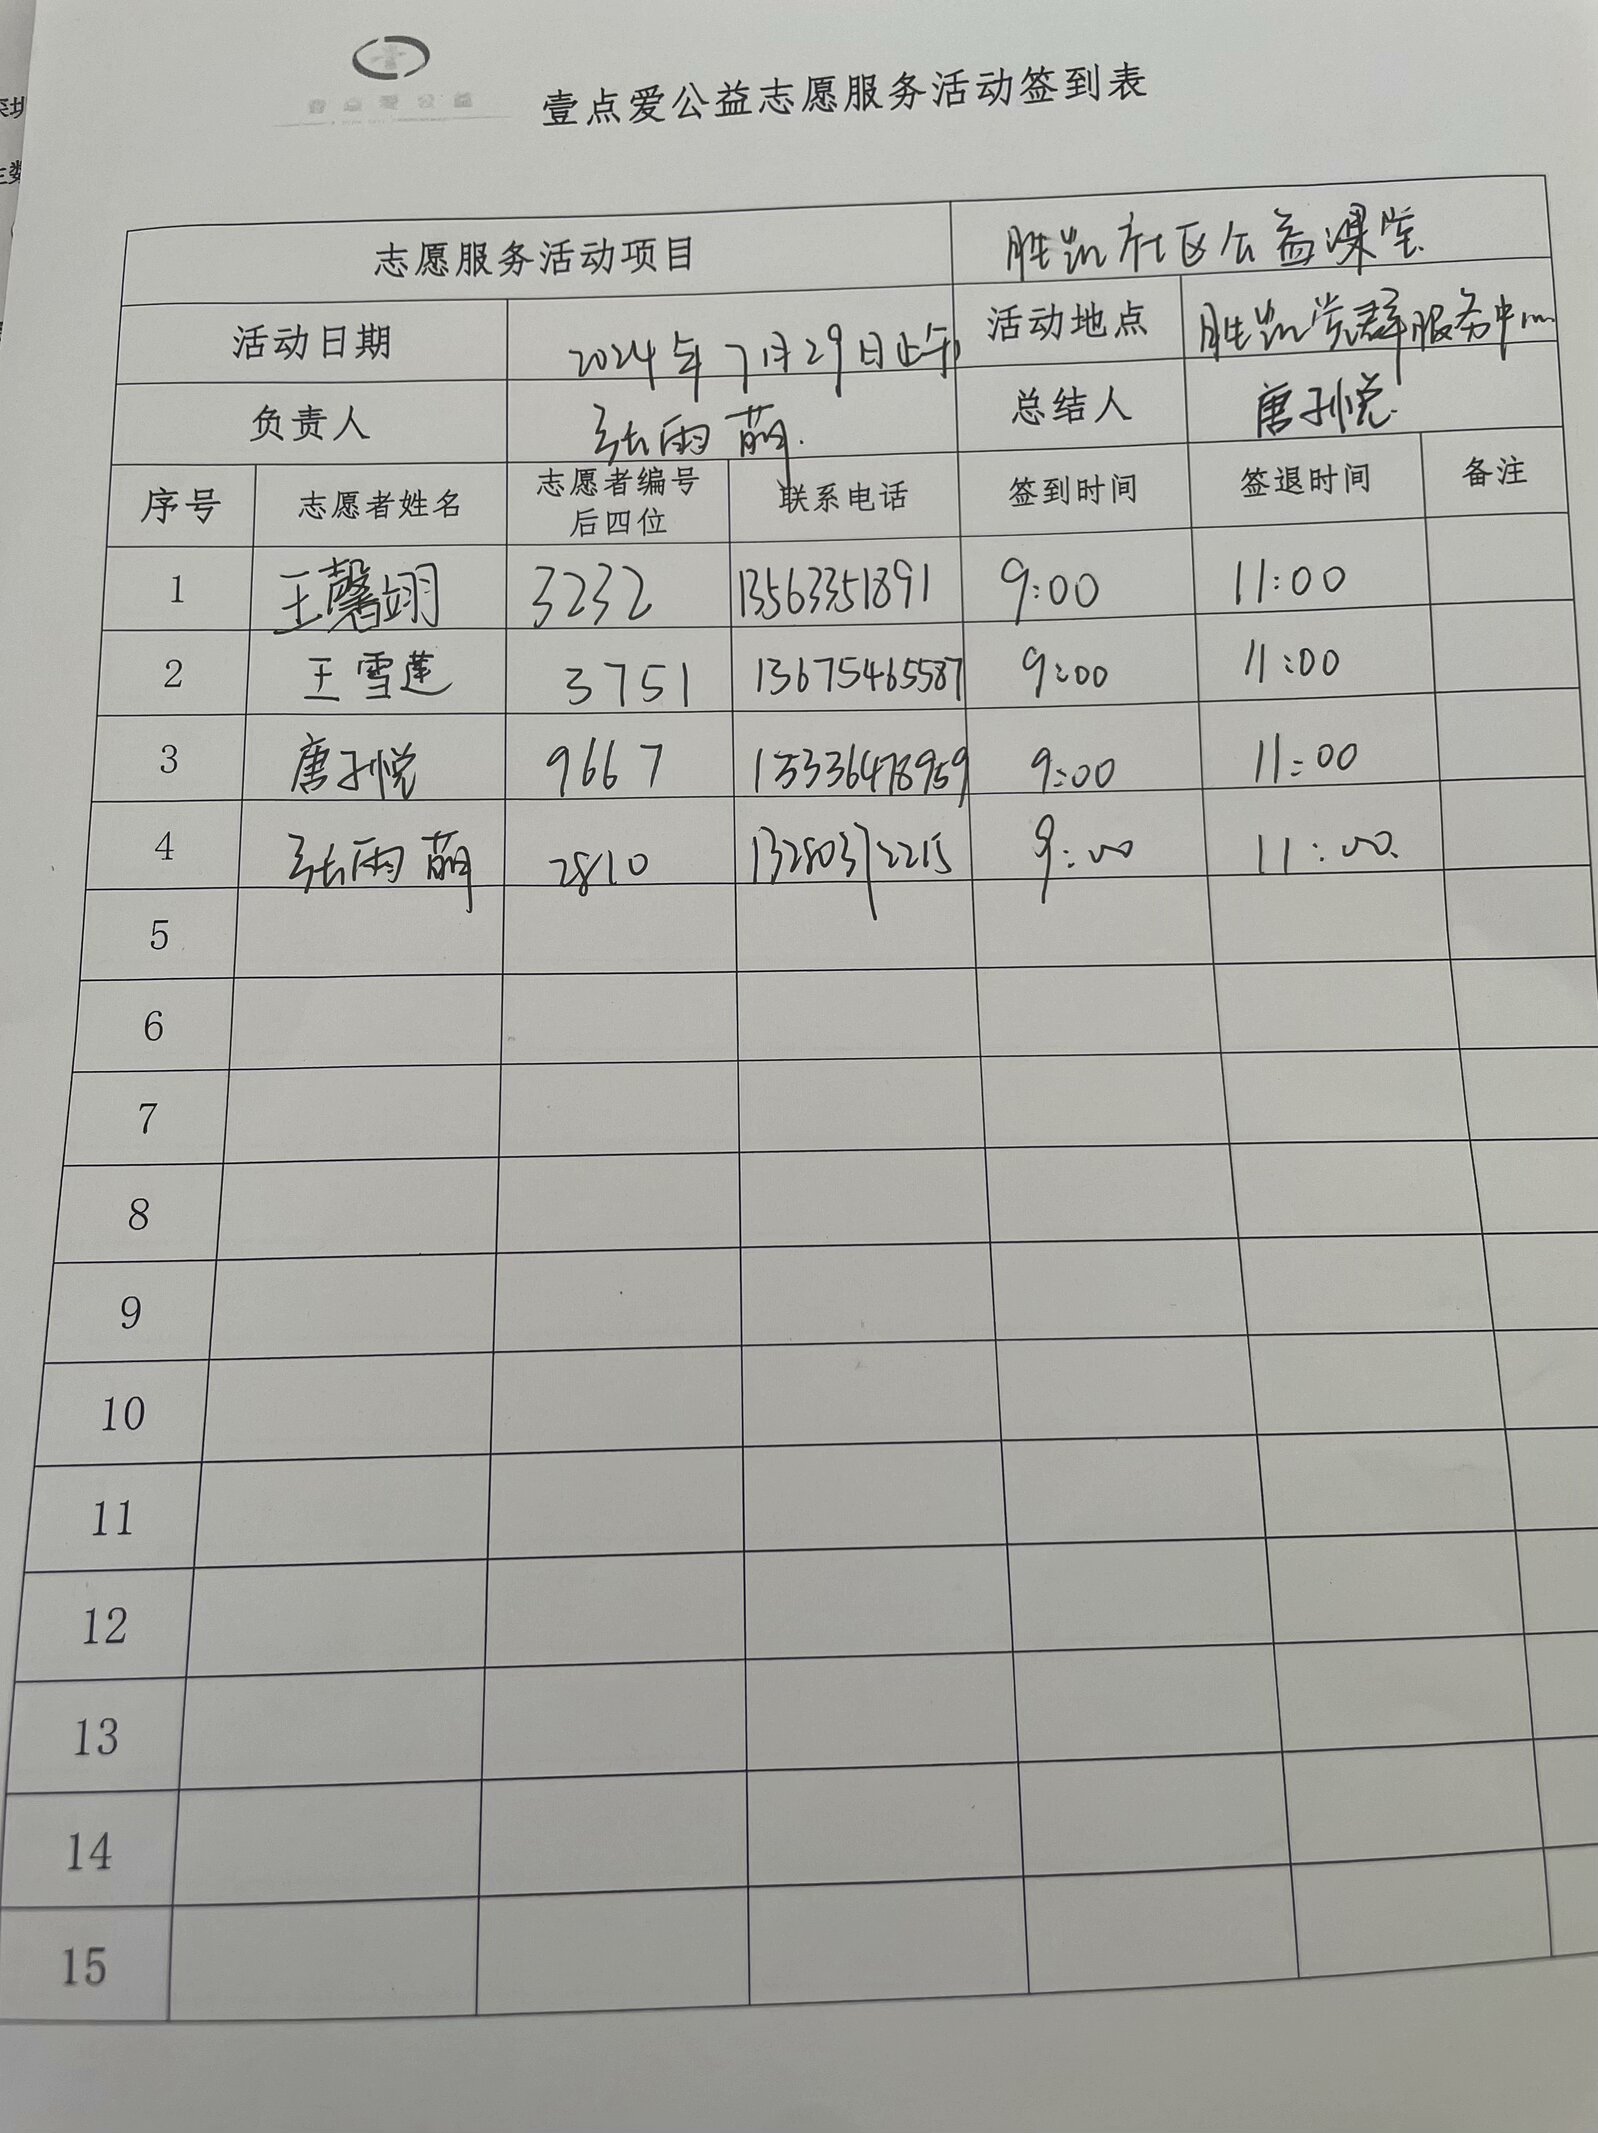 壹点爱公益
壹点爱公益志愿服务活动签到表
志愿服务活动项目 胜凯社区公益课堂
活动日期 2024年7月29日上午 活动地点 胜凯党群服务中心
负责人 张雨萌 总结人 唐子悦
序号 志愿者姓名 志愿者编号后四位 联系电话 签到时间 签退时间 备注
1 王馨翊 3232 13563351891 9:00 11:00
2 王雪莲 3751 13675465587 9:00 11:00
3 唐子悦 9667 15336478959 9:00 11:00
4 张雨萌 2810 13280372215 9:00 11:00
5
6
7
8
9
10
11
12
13
14
15